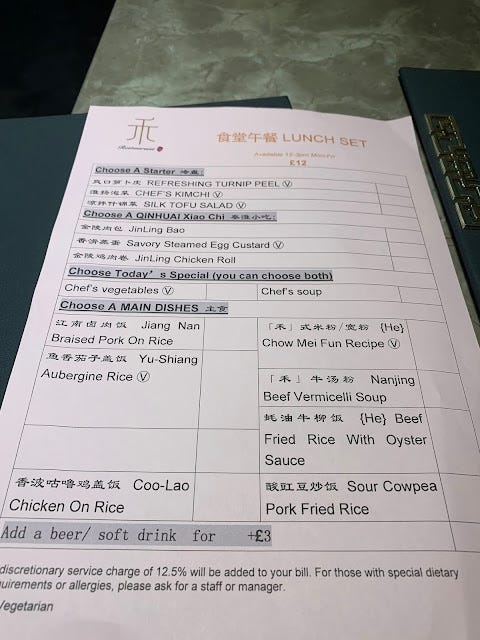 禾
Restaurant
食堂午餐 LUNCH SET
Available 12-3pm Mon-Fri
£12
Choose A Starter 冷盘:
风日萝卜皮 REFRESHING TURNIP PEEL Ⓥ
淮扬泡菜 CHEF'S KIMCHI Ⓥ
凉拌什锦菜 SILK TOFU SALAD Ⓥ
Choose A QINHUAI Xiao Chi 秦淮小吃:
金陵肉包 JinLing Bao
香滑蒸蛋 Savory Steamed Egg Custard Ⓥ
金陵鸡肉卷 JinLing Chicken Roll
Choose Today's Special (you can choose both)
Chef's vegetables Ⓥ
Chef's soup
Choose A MAIN DISHES 主食
江南卤肉饭 Jiang Nan
Braised Pork On Rice
「禾」式米粉/宽粉 {He}
Chow Mei Fun Recipe Ⓥ
鱼香茄子盖饭 Yu-Shiang
Aubergine Rice Ⓥ
「禾」牛汤粉 Nanjing
Beef Vermicelli Soup
蚝油牛柳饭 {He} Beef
Fried Rice With Oyster
Sauce
香波咕噜鸡盖饭 Coo-Lao
Chicken On Rice
酸豇豆炒饭 Sour Cowpea
Pork Fried Rice
Add a beer/ soft drink for +£3
discretionary service charge of 12.5% will be added to your bill. For those with special dietary
uirements or allergies, please ask for a staff or manager.
Vegetarian